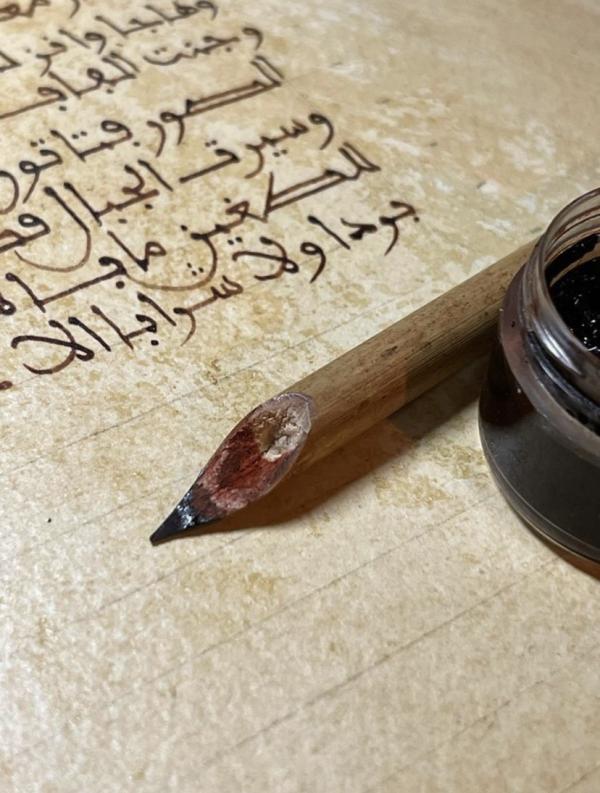 وهاجا وانز
وجنت الفافا
الصور فتاتون
وسيرت الجبال
للطغين مابا
بردا ولا شرابا الا